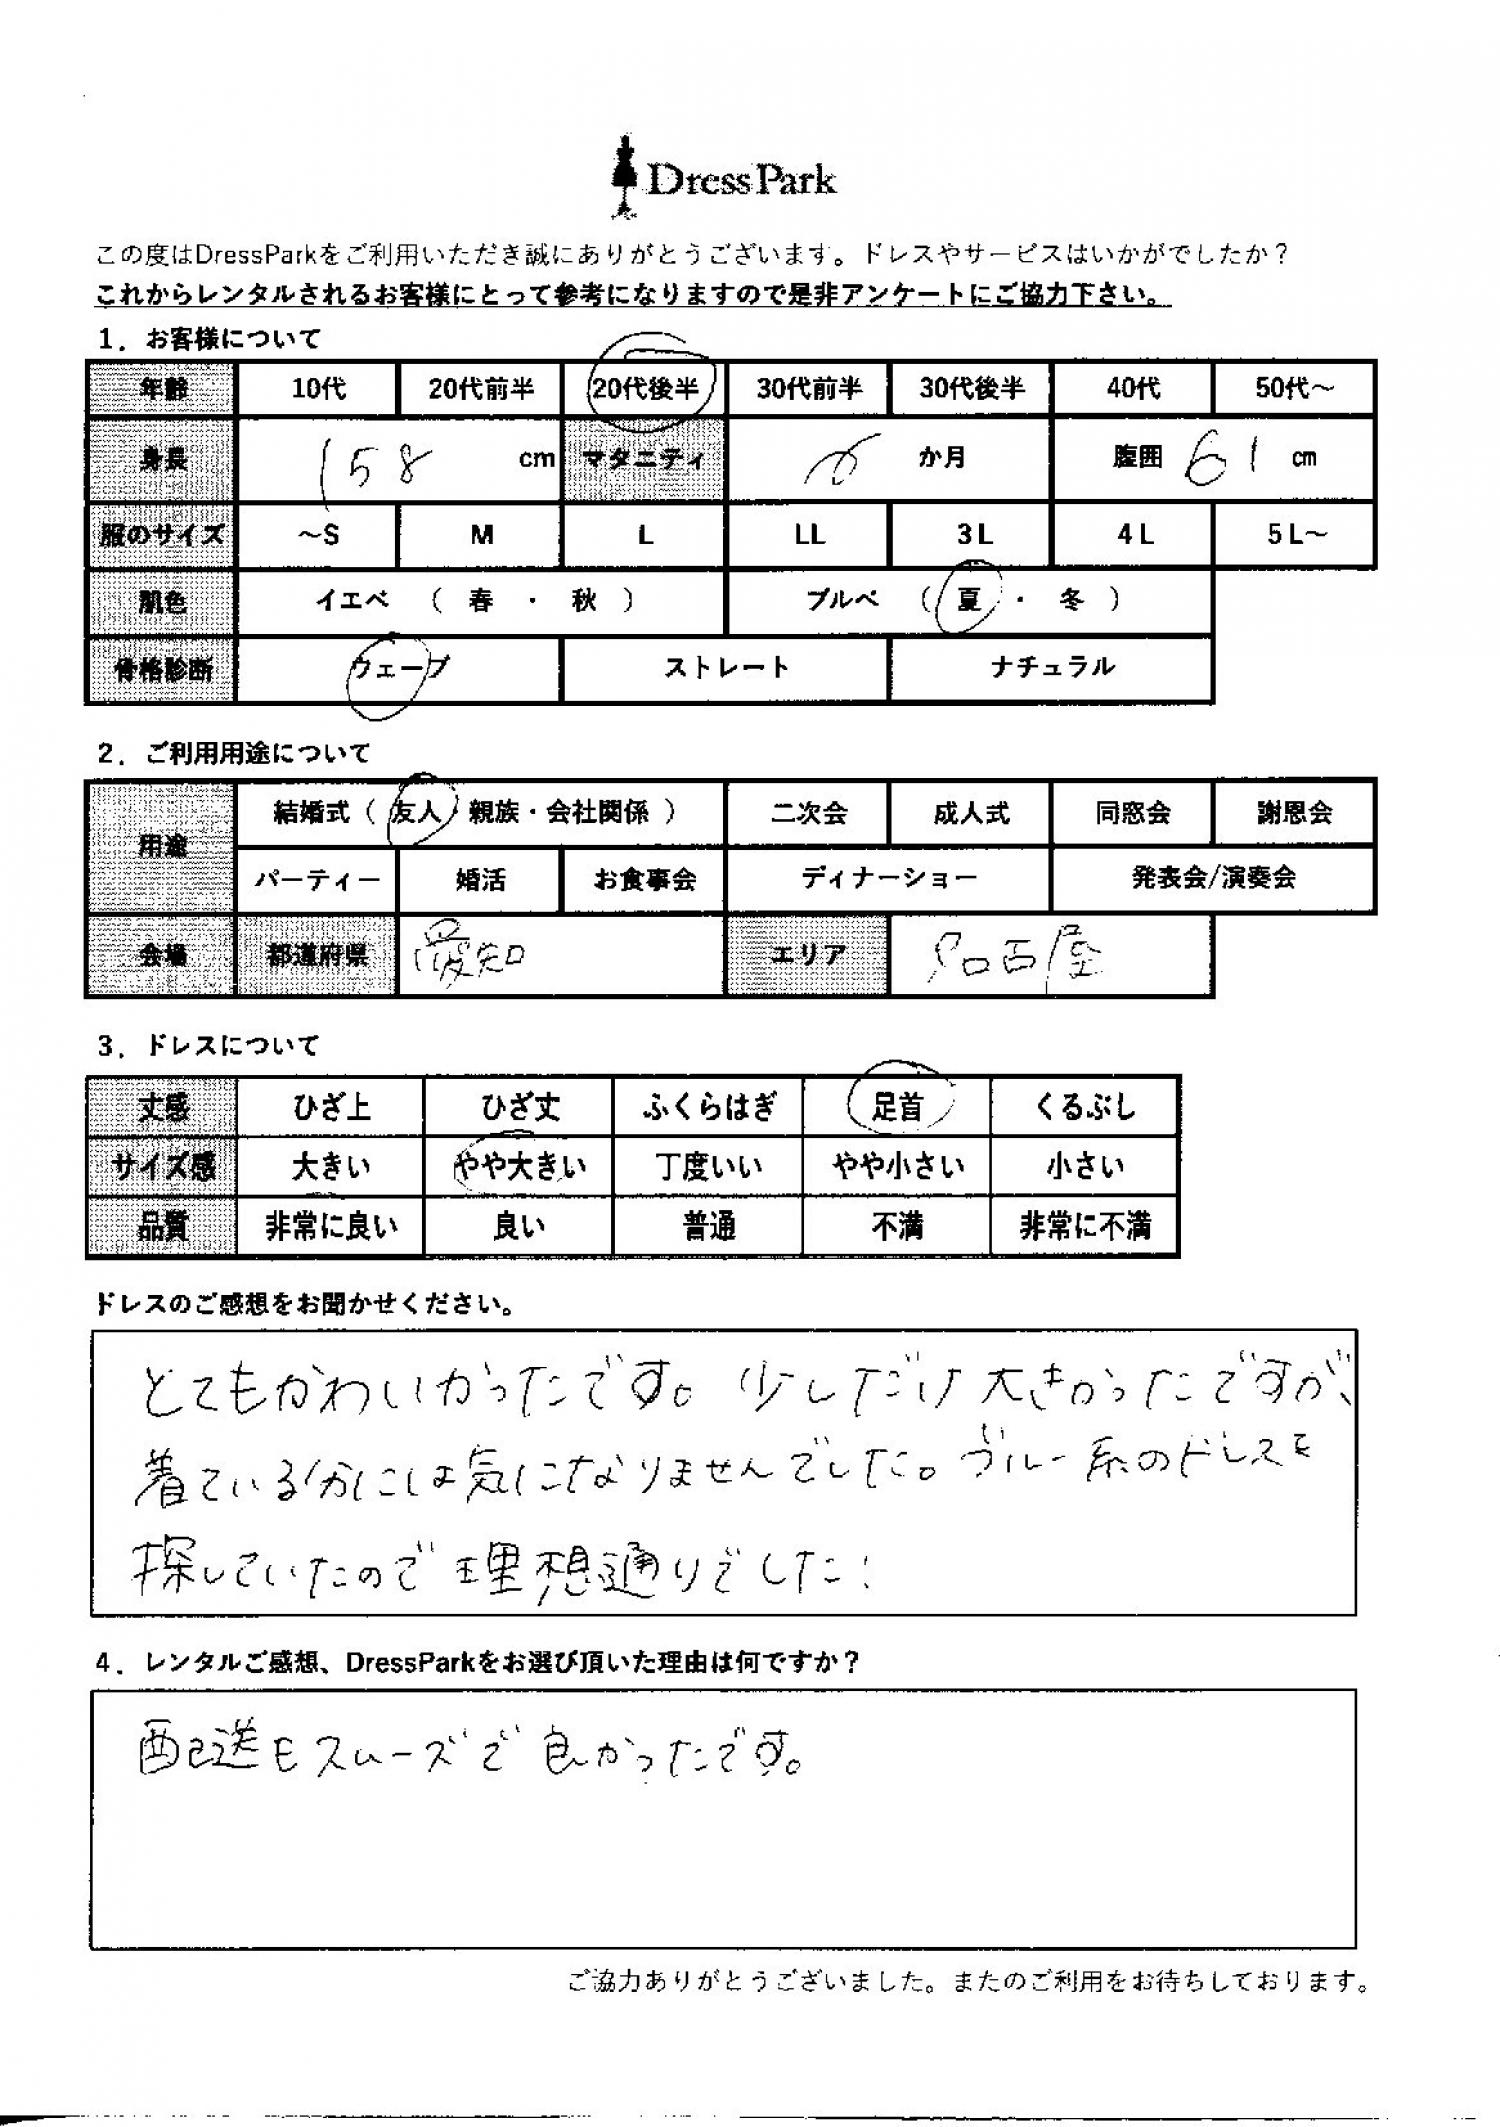 DressPark
この度はDressParkをご利用いただき誠にありがとうございます。ドレスやサービスはいかがでしたか？
これからレンタルされるお客様にとって参考になりますので是非アンケートにご協力下さい。
1．お客様について
年齢 10代 20代前半 20代後半 30代前半 30代後半 40代 50代～
身長 158 cm マタニティ か月 腹囲 61 cm
服のサイズ ～S M L LL 3L 4L 5L～
肌色 イエベ （ 春 ・ 秋 ） ブルベ （ 夏 ・ 冬 ）
骨格診断 ウェーブ ストレート ナチュラル
2．ご利用用途について
用途 結婚式（ 友人・親族・会社関係 ） 二次会 成人式 同窓会 謝恩会
パーティー 婚活 お食事会 ディナーショー 発表会/演奏会
会場 都道府県 愛知 エリア 名古屋
3．ドレスについて
丈感 ひざ上 ひざ丈 ふくらはぎ 足首 くるぶし
サイズ感 大きい やや大きい 丁度いい やや小さい 小さい
品質 非常に良い 良い 普通 不満 非常に不満
ドレスのご感想をお聞かせください。
とてもかわいかったです。少しだけ大きかったですが、
着ている分には気になりませんでした。ブルー系のドレスを
探していたので理想通りでした！
4．レンタルご感想、DressParkをお選び頂いた理由は何ですか？
配送もスムーズで良かったです。
ご協力ありがとうございました。またのご利用をお待ちしております。